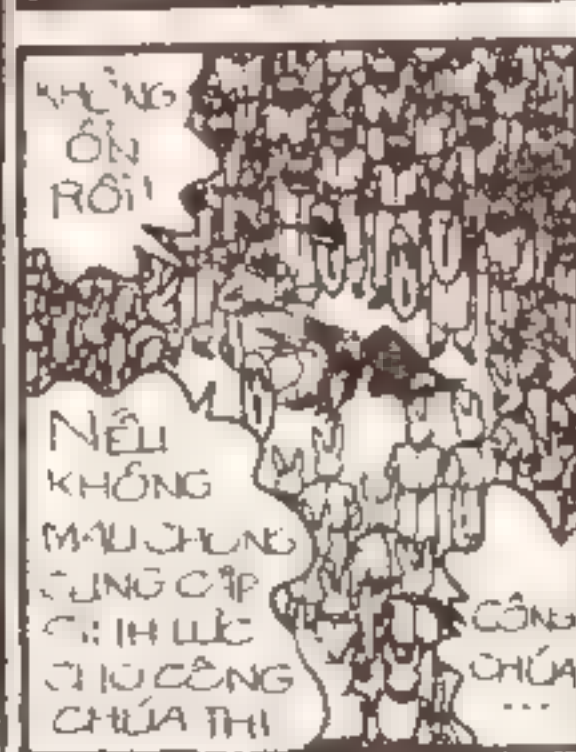 KHÔNG
ỔN
RỒI!
NẾU
KHÔNG
MAU CHÓNG
CUNG CẤP
SINH LỰC
CHO CÔNG
CHÚA THÌ
CÔNG
CHÚA
...